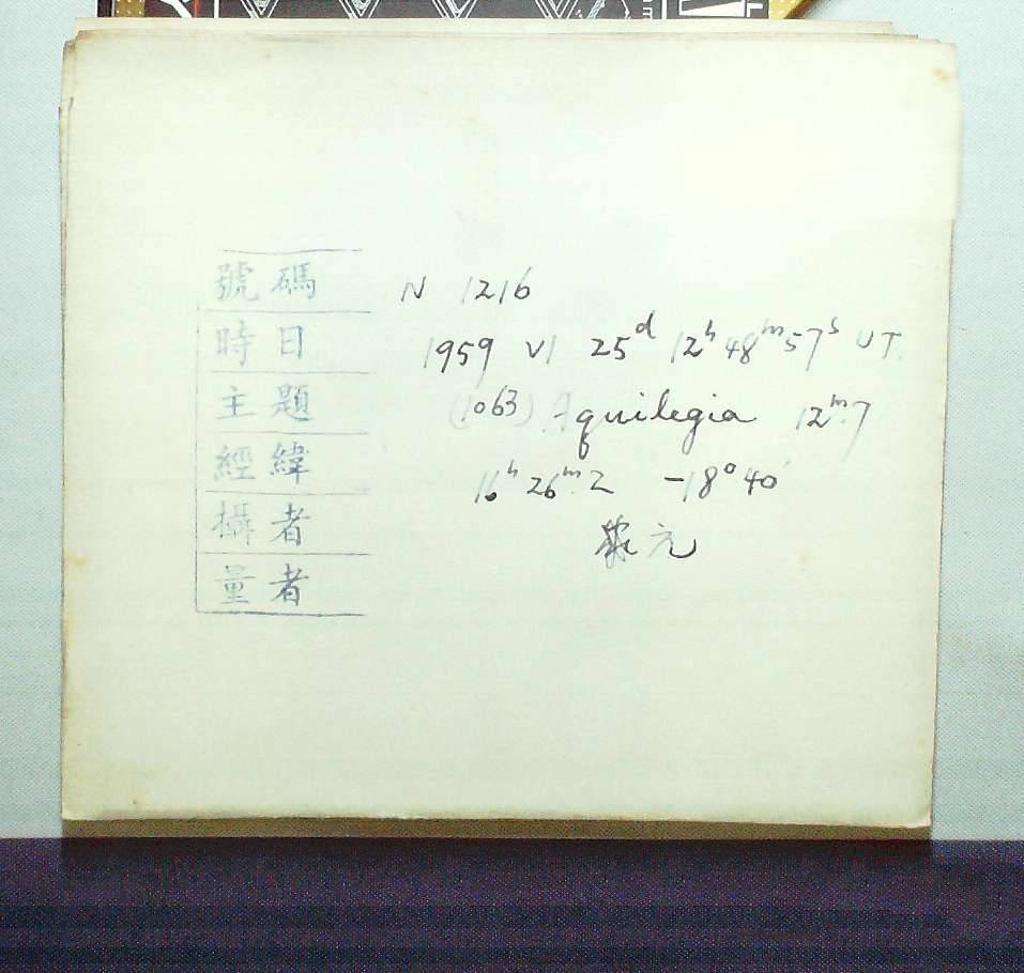 號碼 N 1216
時日 1959 VI 25ᵈ 12ʰ 48ᵐ 57ˢ UT.
主題 (1063) Aquilegia 12ᵐ.7
經緯 16ʰ 26ᵐ.2 -18° 40'
攝者 元
量者